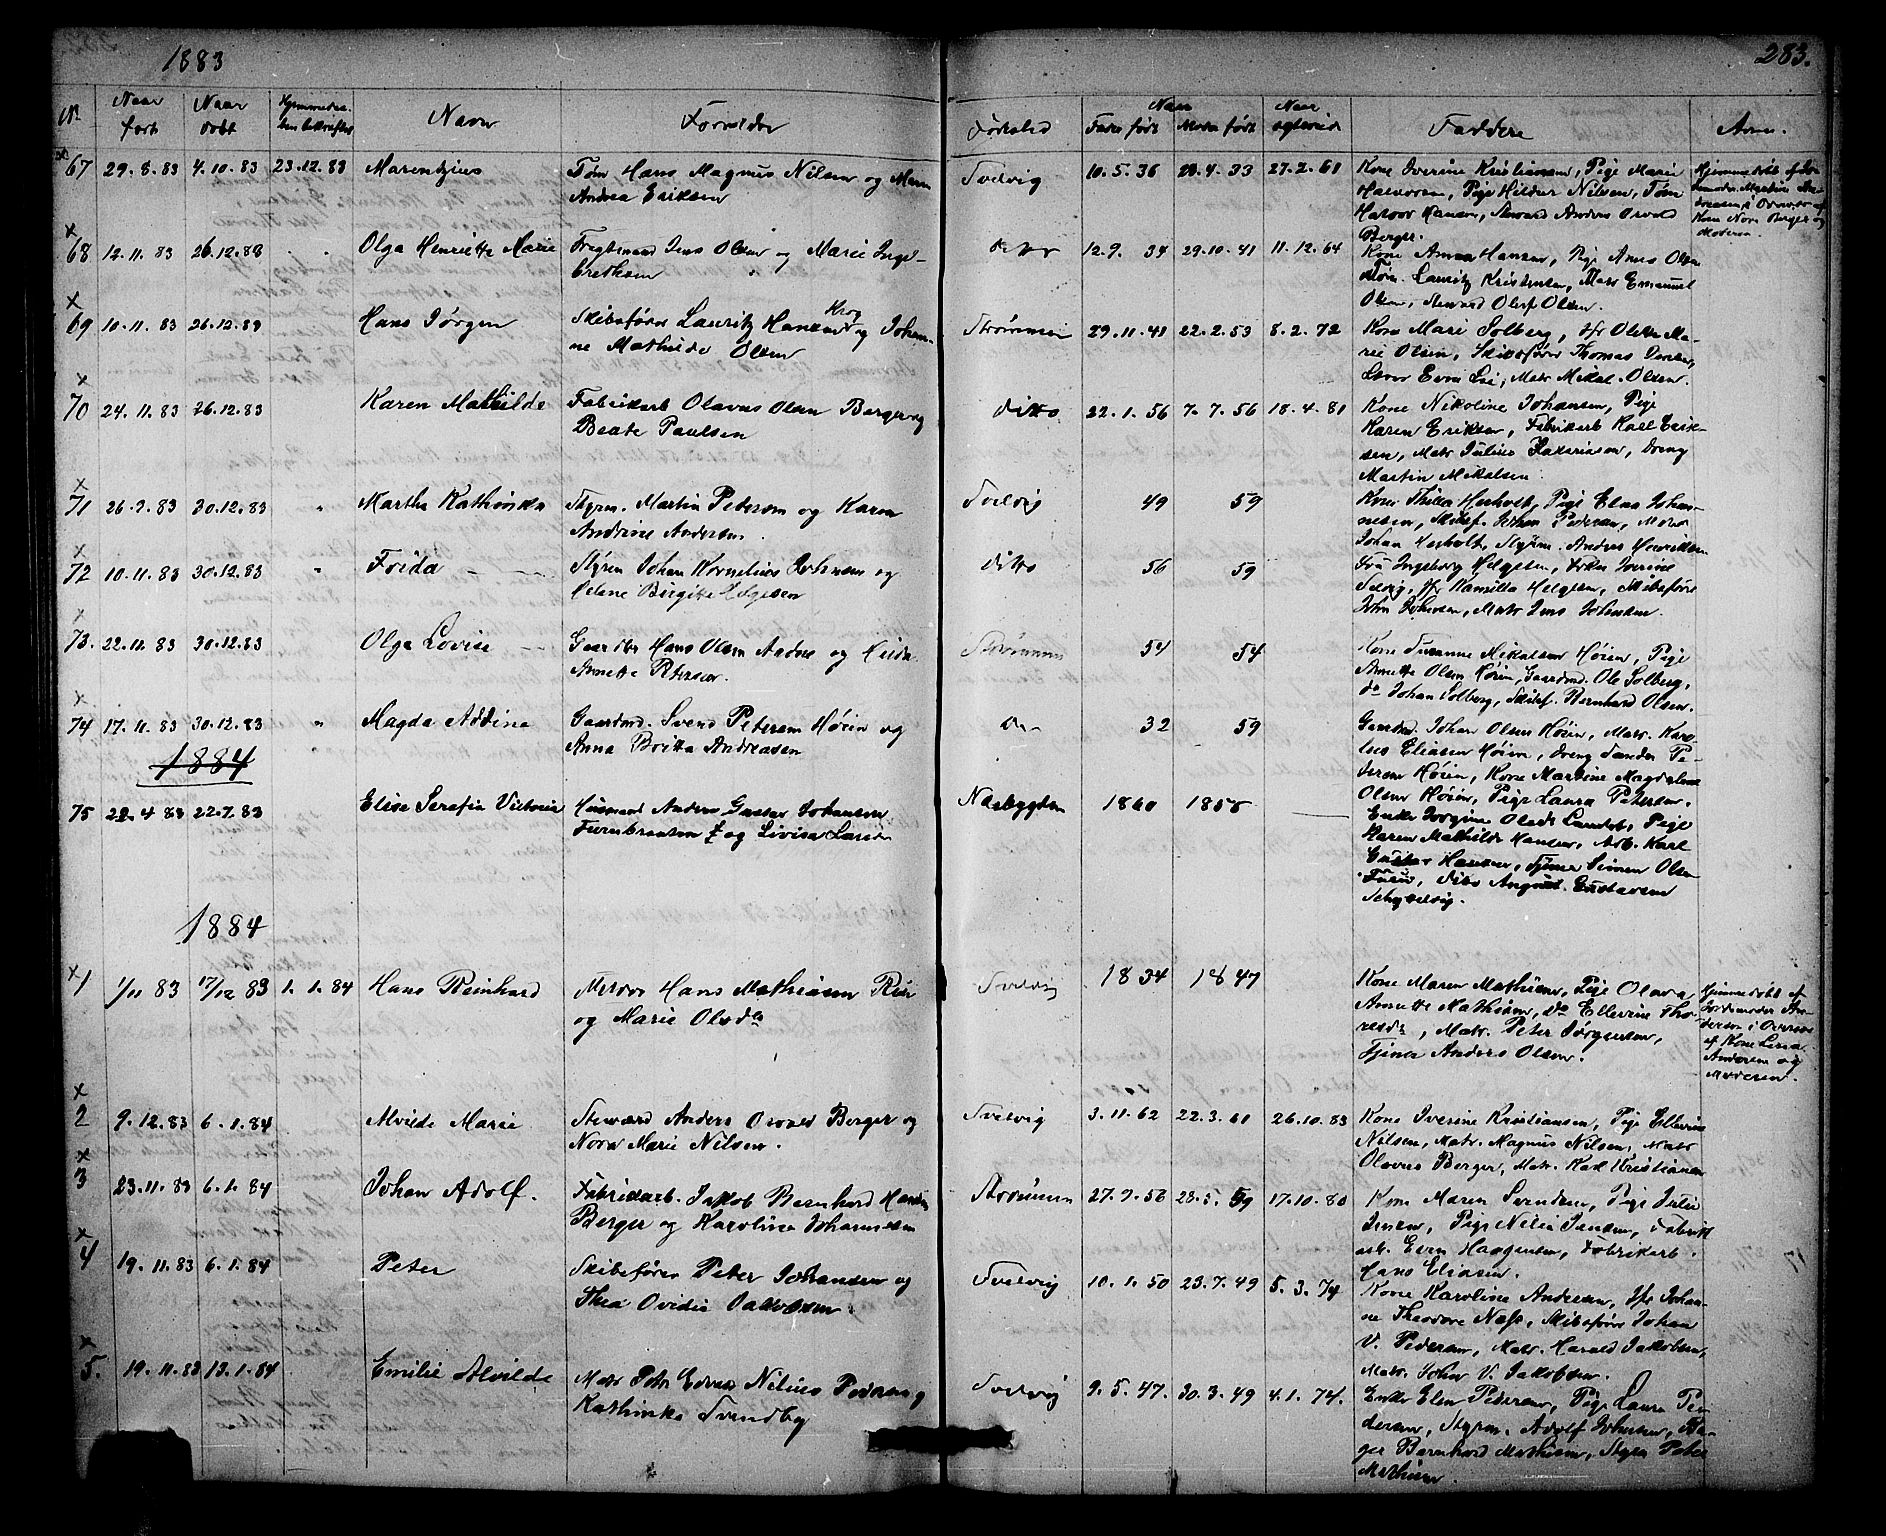 1883
283.
No
Naar født
Naar døbt
Hjemmedaaben bekræftet
Navn
Forældre
Fødested
Naar
Fader født
Moder født
Naar
Faddere
Anm.
67 29.8.83 4.10.83 23.12.83 Marentzius Tøm Hans Magnus Nilsen og Maren
Andrea Eriksen
Svelvig 10.5.36 27.2.61
Kone Iverine Kristiansen, Pige Marie
Halvorsen, Pige Hilder Nilsen, Tøm
Halvor Hansen, Steward Anders Osvald
Berger.
68 12.11.83 26.12.83 " Olga Henriette Marie Fragtemand Jens Olsen og Marie Inge-
brethsen
ditto 12.9.34 29.10.41 11.12.64
Kone Anna Hansen, Pige Anna Olsen
Tøm. Lauritz Kristensen, Matr Emanuel
Olsen, Steward Oluf Olsen.
69 10.11.83 26.12.83 Hans Jørgen Skibsfører Lauritz Hansen Krog og Johan-
ne Mathilde Olsen
Strømmen 29.11.41 22.2.53 8.2.72
Kone Mari Solberg, Olette Ma-
rie Olsen, Skibsfører Thomas
Even Lie, Matr Mikal Olsen.
70 24.11.83 26.12.83 Karen Mathilde Fabrikarb Olavus Olsen Berger og
Beate Paulsen
ditto 22.1.56 7.7.56 18.4.81
Kone Nikoline Johansen, Pige
Karen Eriksen, Fabrikarb Karl Erik-
sen, Matr Julius Zakariasen, Dreng
Martin Mikalsen.
71 26.9.83 30.12.83 " Martha Kathinka Styrm. Martin Pedersen og Karen
Andrine Andersen.
Svelvig 49 59
Kone Thilla Herholt, Pige Elna Johan-
nesen, Skibsf. Johan Pedersen,
Johan Herholt, Styrm. Anders Henriksen
72 10.11.83 30.12.83 " Frida Styrm Johan Kornelius Johnsen og
Helene Birgitte Helgesen
ditto 56 59
Fru Ingeborg Helgesen, Frøken Iverine
Svelvig, Kamilla Helgesen, Skibsfører
John Johnsen, Matr Jens Johnsen.
73. 22.11.83 30.12.83 Olga Lovise Gaardbr Hans Olsen og Hilda
Annette Petersen.
Strømmen 54 54
Kone Susanne Mikalsen Høien, Pige
Annette Olsen Høien, Gaardmd. Ole Solberg,
do Johan Solberg, Skibsf. Bernhard Olsen.
74 17.11.83 30.12.83 " Magda Addina Gaardmd. Svend Petersen Høien og
Anna Britta Andreasen
do 32 59
Gaardmd. Johan Olsen Høien, Matr. Karo-
lus Eliasen Høien, Dreng Sander Pe-
dersen Høien, Kone Martine Magdalene
Olsen Høien, Pige Laura Petersen.
1884
75 22.4.83 22.7.83 Elise Serafia Victoria Husmand Anders Gustav Johansen
og Lovisa Larsen
Næsbygden 1860 1858
Enke Jorgine Olsdt Landet, Pige
Karen Mathilde Hansen, Arb. Karl
Gustav Hansen, Tjener Simen Olsen
, ditto August Gustavsen
1884
1 1/11 83 17/12 83 1.1.84 Hans Reinhard Matros Hans Mathiasen
og Marie Olsdtr
Svelvig 1834 1847
Kone Maren Mathisen, Pige Olava
Annette Mathisen, do Ellevine Tho-
resdtr, Matr. Peter Jørgensen,
Tjener Anders Olsen.
Hjemmedøbt af
Jordmoder An-
dersen i Overvær
af Kone Lina
Andersen og
Moderen.
2 9.12.83 6.1.84 Alvilde Marie Steward Anders Osvald Berger og
Nora Marie Nilsen.
Svelvig 3.11.62 22.3.61 26.10.83
Kone Iverine Kristiansen, Pige Ellevine
Nilsen, Matr. Magnus Nilsen, Matr
Olavus Berger, Matr. Karl Kristiansen
3 23.11.83 6.1.84 Johan Adolf. Fabrikarb. Jakob Bernhard Hansen
Berger og Karoline Johannesen
Strømmen 27.9.56 17.10.80
Kone Maren Svendsen, Pige Julie
Jensen, Pige Nilia Jansen, Fabrik-
arb. Even Haagensen, Fabrikarb.
Hans Eliasen.
4 19.11.83 6.1.84 Peter Skibsfører Peter Johansen og
Thea Ovidia Jakobsen.
Svelvig 10.1.50 23.7.49 5.3.74
Kone Karoline Andersen, Johan-
ne Theodore Næss, Skibsfører Johan
V. Pedersen, Matr. Harald Jakobsen,
Matr. John V. Jakobsen.
5. 19.11.83 13.1.84 Emilie Alvilde Matr Peter Edvard Nilius Pedersen og
Kathinka Svendby
Svelvig 9.5.47. 30.3.49 4.1.74.
Enke Elen Pedersen, Pige Laura Pe-
dersen, Styrm. Adolf Johnsen, Ba-
ger Bernhard Mathisen, Styrm Peter
Mathisen.